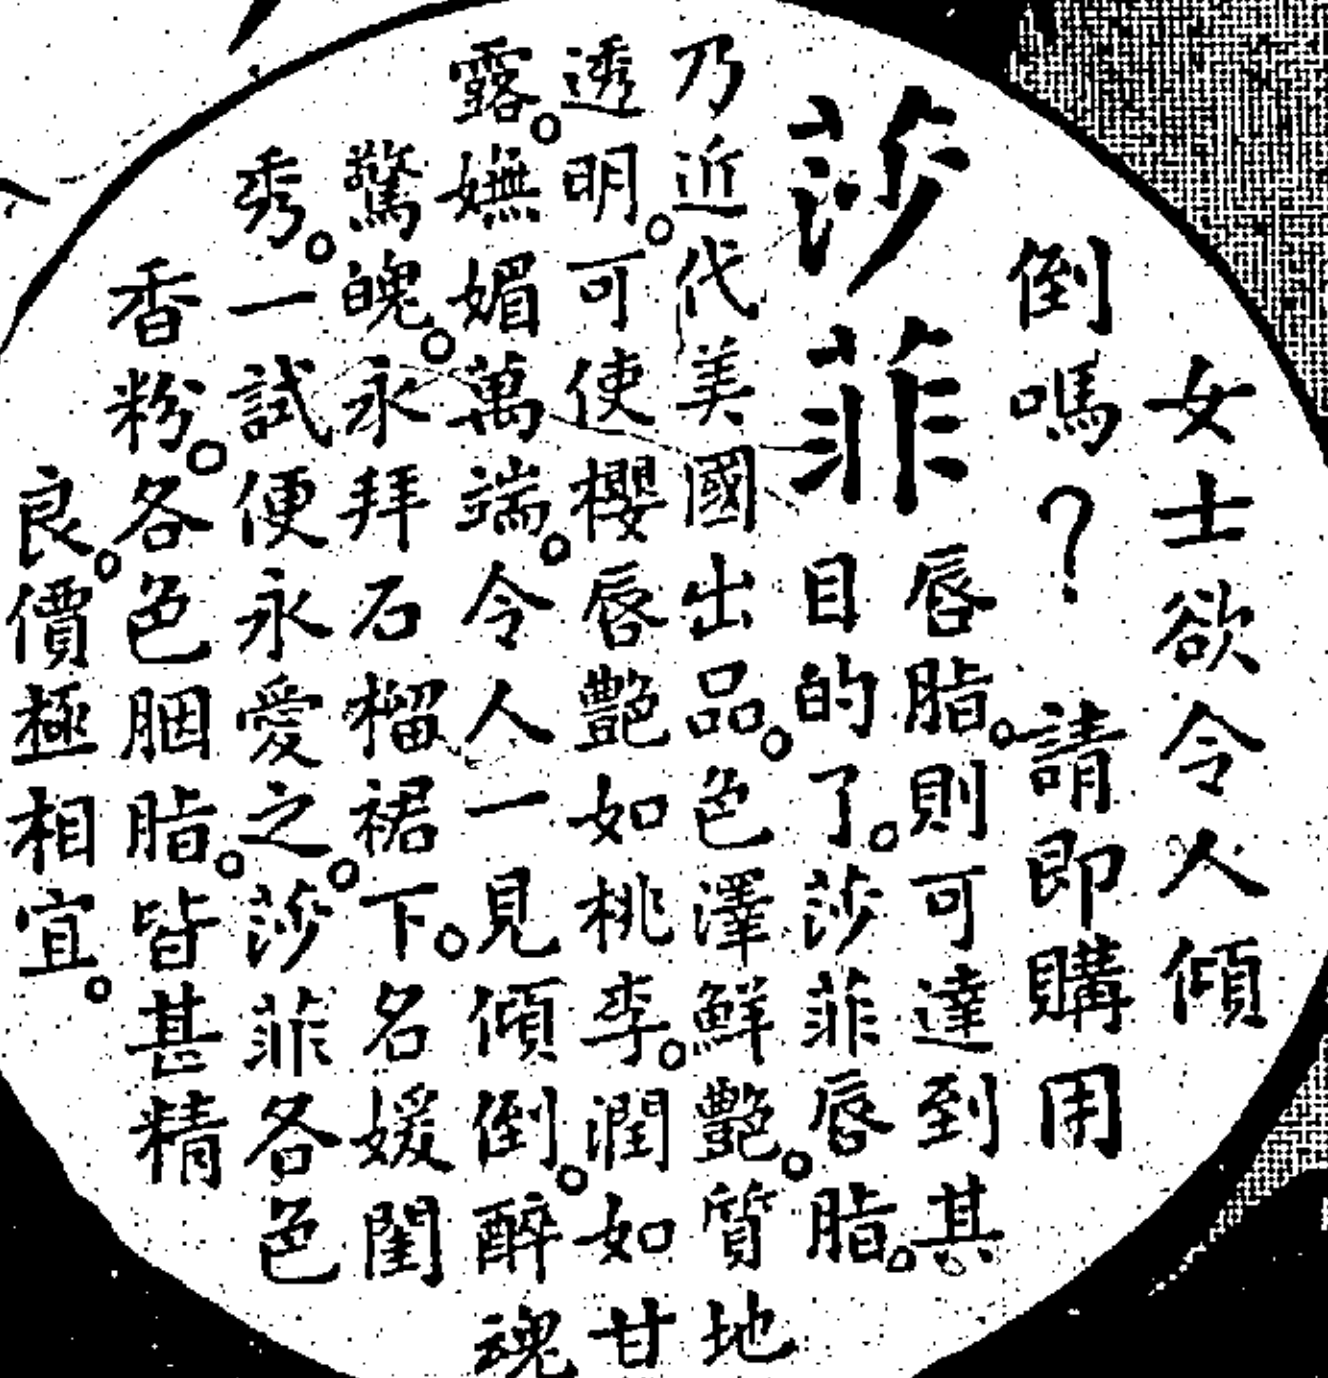 女士欲令人傾
倒嗎？請即購用
莎菲唇脂。則可達到其
目的了。莎菲唇脂。
乃近代美國出品。色澤鮮艷。質地
透明。可使櫻唇艷如桃李。潤如甘
露。嫵媚萬端。令人一見傾倒。醉魂
驚魄。永拜石榴裙下。名媛閨
秀。一試便永愛之。莎菲各色
香粉。各色胭脂。皆甚精
良。價極相宜。